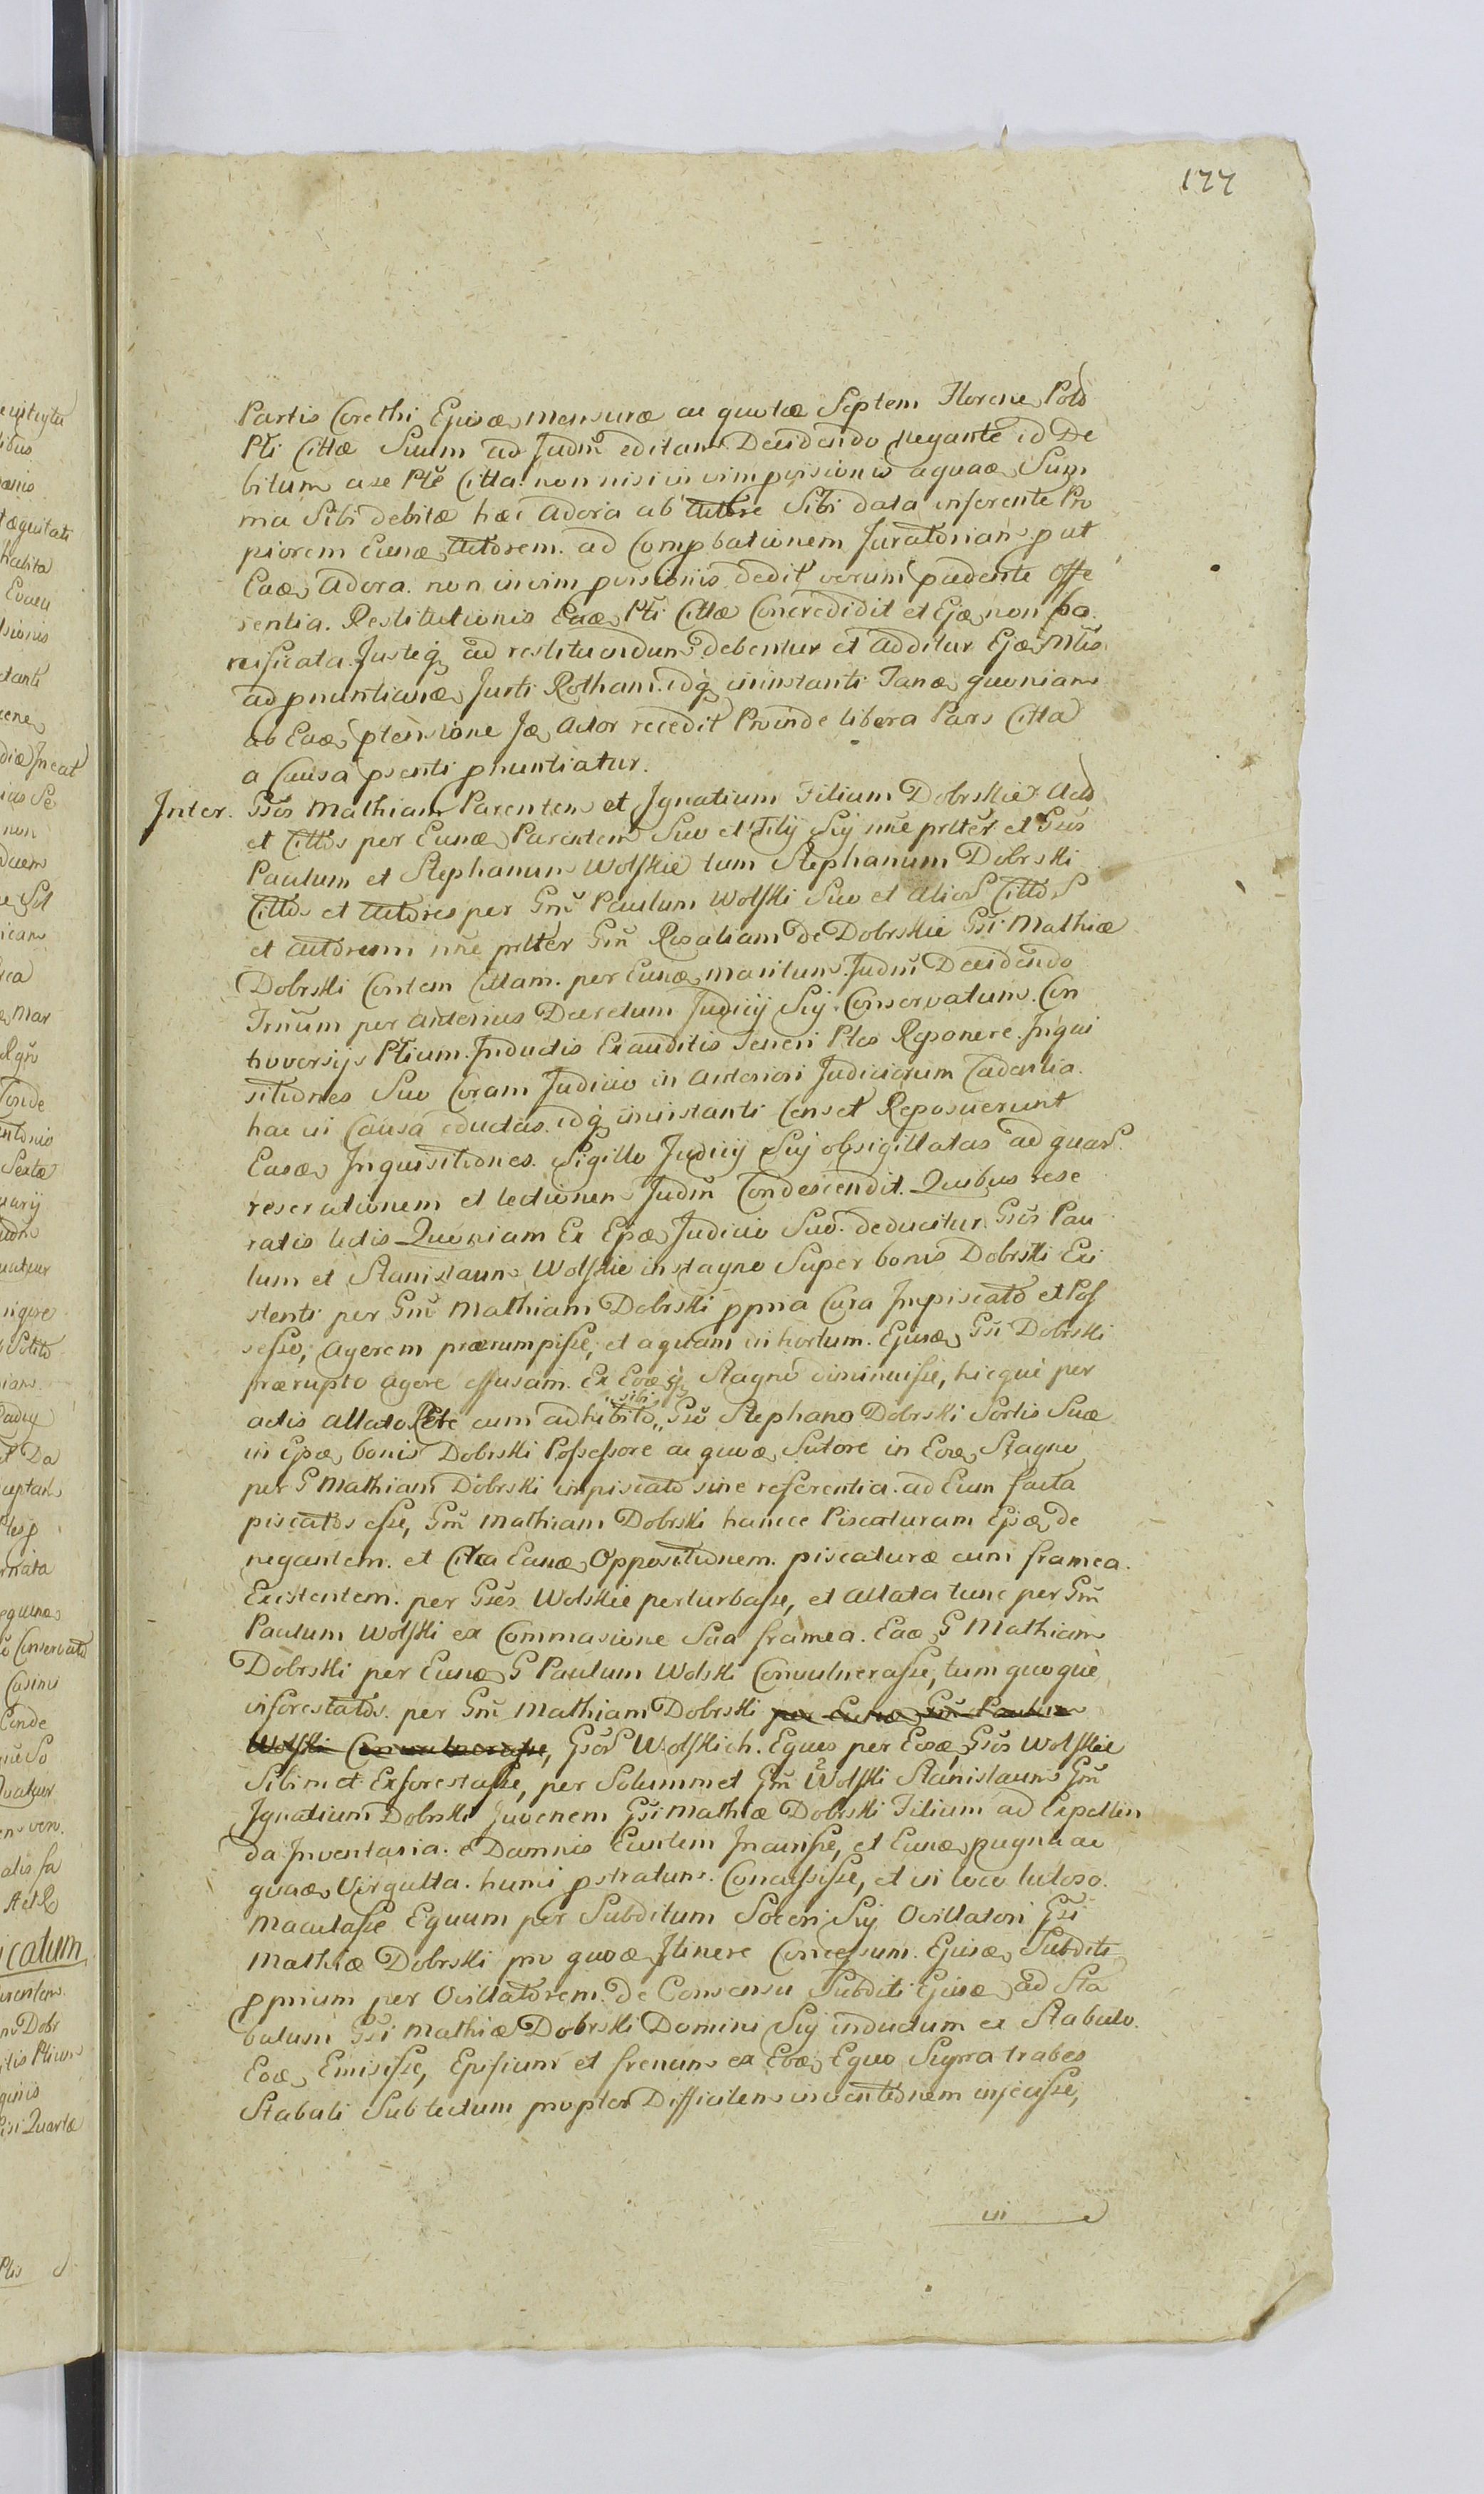 177
Partis Corethi Ejusd mensuræ ac quotæ Septem Florenr Pold
Pti Cittæ Suum ad Judm editam Decidendo negante id De
bitum a se Pte Citta non nisi in vim pvisionis aquæ Sum
ma Sibi debitæ hæc Adora ab Actore Sibi data inferente Pro
piorem Eund Actorem ad Compbationem Juratoriam put
Ead Adora non in vim pvisionis dedit verum pcedente Offe
rentia Restitutionis Ead Pti Cittæ Concredidit et Ejd non
reificata Justeq ad restituendum debentur et additur Ejd Mtis
ad pnuntiand Jurti Rotham idq in instanti Jand quoniam
ab Ead ptensione Jd Actor recedit Proinde libera Pars Citta
a Causa psenti pnuntiatur.
Inter. Gsos Mathiam Parentem et Ignatium Filium Dobrskie Acto
et Cittos per Eund Parentem Suo et Filij Sui nne prlter et Gsos
Paulum et Stephanum Wolskie tum Stephanum Dobrski
Cittos et Actores per Gm Paulum Wolski Suo et alior Cittor
et Actorum nne prlter Gm Rosaliam de Dobrskie Gsi Mathiæ
Dobrski Contem Cittam per Eund maritum Judm Decidendo
Trnum per anterius Decretum Judicij Sui Conservatum Con
troversijs Ptium Inductis Exauditis Teneri Ptes Reponere Inqui
sitiones Suo Coram Judicio in Anteriori Judiciorum Cadentia
hac in Causa eductas idq in instanti Censet Reposuerunt
Easd Inquisitiones Sigillo Judicij Sui obsigillatas ad quar
reserationem et lectionem Judm Condescendit. Quibus rese
ratis lectis Quoniam Ex Epd Judicio Suo deducitur Gsos Pau
lum et Stanislaum Wolskie in stagno Super bonis Dobrski Exi
stenti per Gm Mathiam Dobrski ppria Cura Impiscato et Pos
sesso, Agerem prærumpisse, et aquam in hortum Ejusd Gsi Dobrski
prærupto agere effusam Ex Eod Stagno diminuisse, hicque per
actis allato Rete cum adhibito „sibi„ Gso Stephano Dobrski Sortis Suæ
in Epd bonis Dobrski Possessore ac quod Sutore in Eod Stagno
per G Mathiam Dobrski impiscato sine referentia ad Eum facta
piscatos esse, Gm Mathiam Dobrski hancce Piscaturam Epd de
negantem et Citra Eand Oppositionem piscaturæ cum framea
Existentem per Gsos Wolskie perturbasse, et allata tunc per Gm
Paulum Wolski ex Commasione Sua framea Ead G Mathiam
Dobrski per Eund G Paulum Wolski Convulnerasse, tum quoque
inforestatos per Gm Mathiam Dobrski per Eund Gm Paulum
Wolski Convulnerasse, Gsor Wolskich Equos per Eosd Gsos Wolskie
Sibimet Exforestasse, per Solummet Gm Wolski Stanislaum Gm
Ignatium Dobrski Juvenem Gsi Mathiæ Dobrski Filium ad Expellen
da Inventaria e Damnis Euntem Incurisse, et Eund pugna ac
quad Virgulta humi pstratum Concussisse, et in loco lutoso
Maculasse Equum per Subditum Soceri Sui Ocillatori Gsi
Mathiæ Dobrski pro quod Itinere Concessum Ejusd Subditi
pprium per Ocillatorem de Consensu Subditi Ejusd ad Sta
bulum Gsi Mathiæ Dobrski Domini Sui inductum ex Stabulo
Eod Emisisse, Epifium et frenum ex Eod Equo Supra trabes
Stabuli Sub tectum propter Difficilem inventionem injecisse,
in